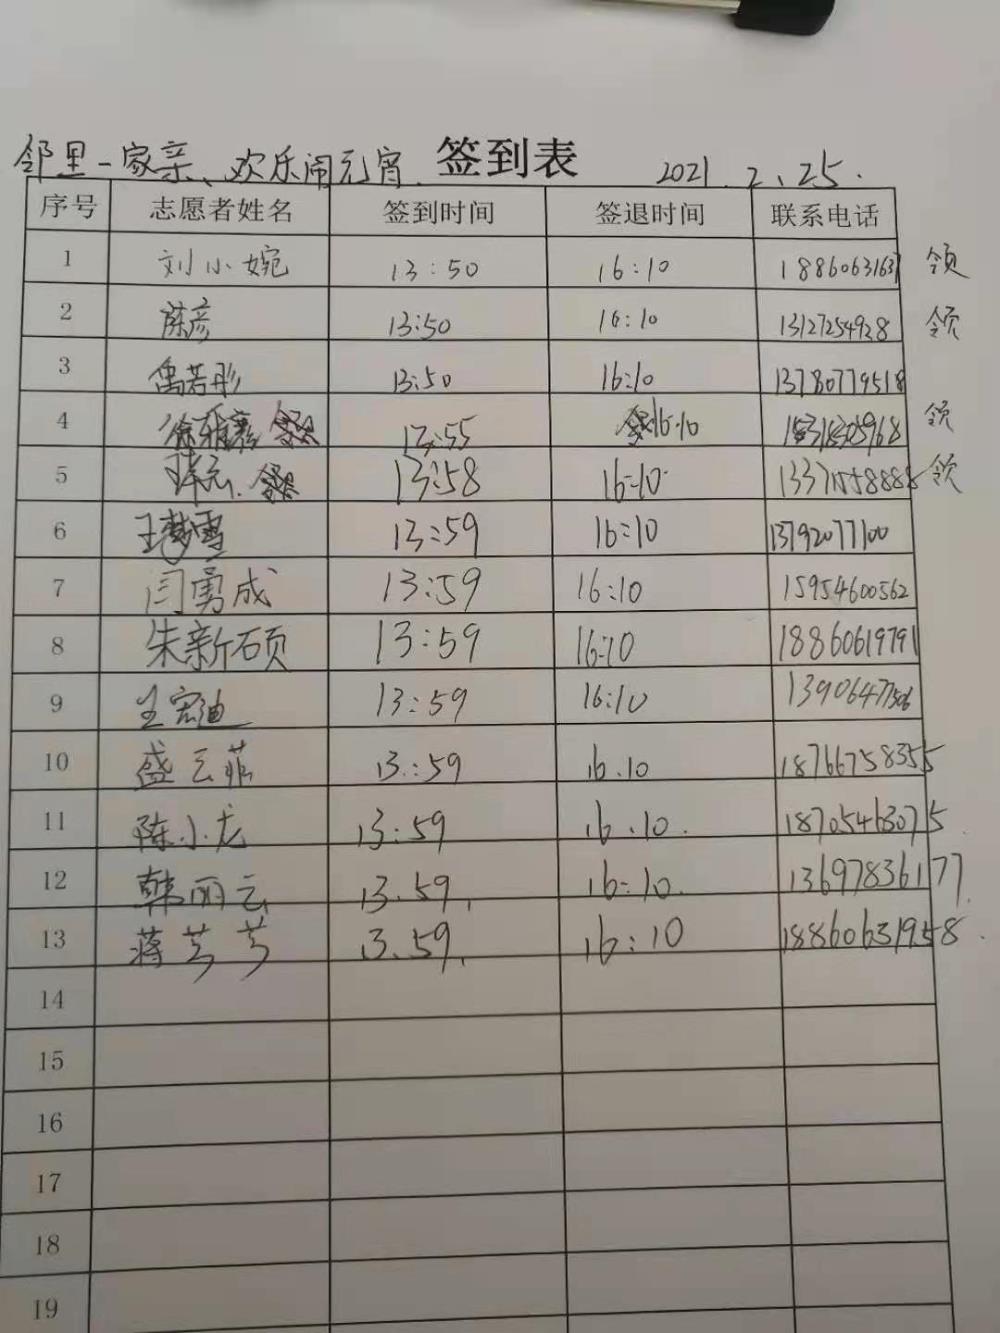 邻里一家亲、欢乐闹元宵. 签到表 2021.2.25.
序号 志愿者姓名 签到时间 签退时间 联系电话
1 刘小婉 13:50 16:10 领
2 陈彦 13:50 16:10 13127254928 领
3 禹若彤 13:50 16:10 13780779518
4 13:55 16:10 领
5 13:58 16:10 领
6 王梦雪 13:59 16:10 13792077100
7 闫勇成 13:59 16:10 15954600562
8 朱新硕 13:59 16:10 18860619791
9 王宏迪 13:59 16:10 13906477506
10 盛云菲 13:59 16.10 18766758355
11 陈小龙 13:59 16.10. 18705463075
12 韩丽云 13.59. 16:10. 13697836177
13 蒋芳芳 13.59. 16:10 18860631958
14
15
16
17
18
19